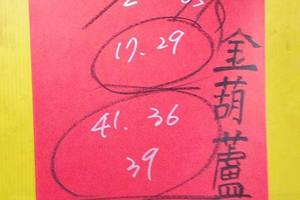 17. 29
41. 36
39
金葫蘆